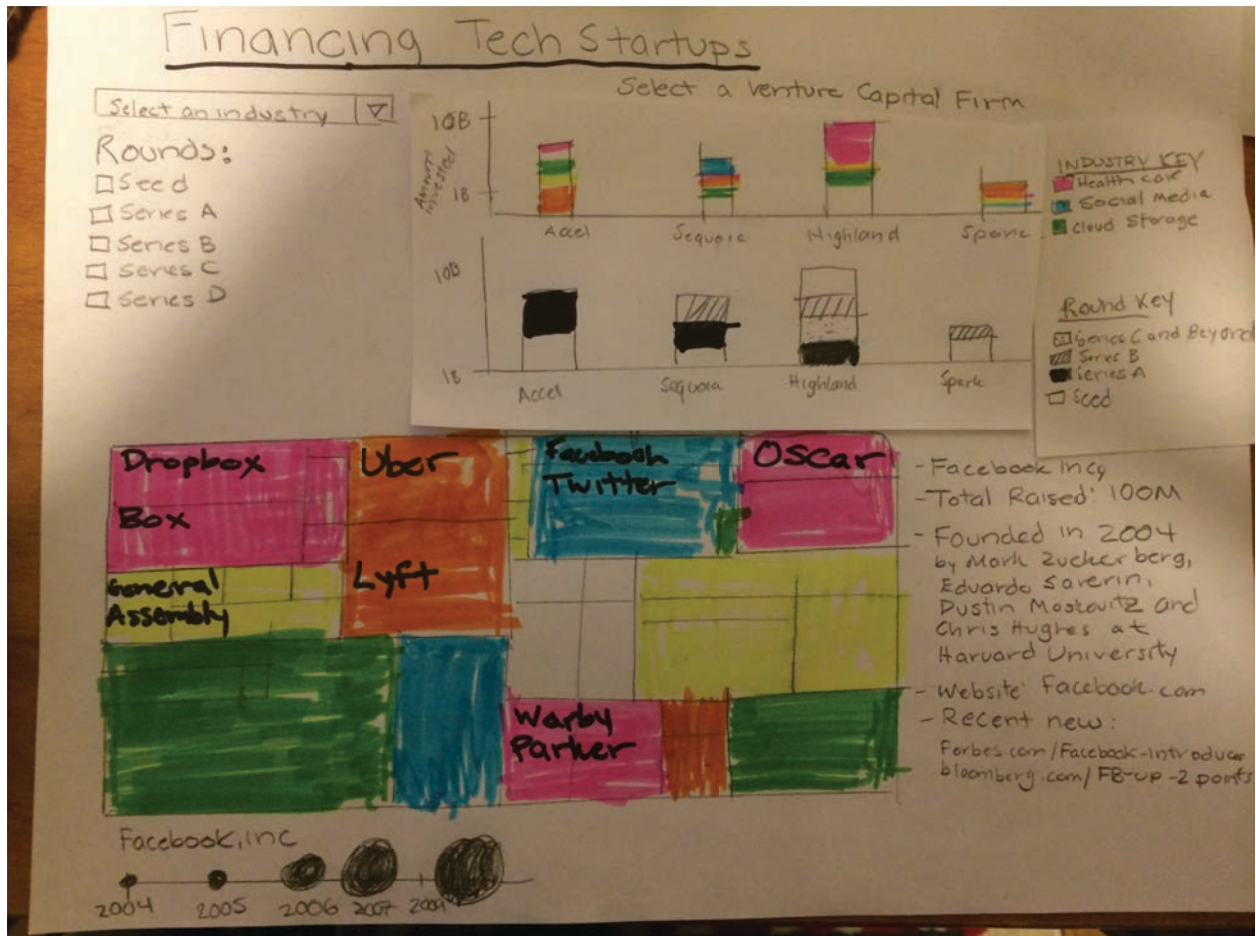 Financing Tech Startups
Select an industry
Rounds:
Seed
Series A
Series B
Series C
Series D
Select a Venture Capital Firm
10B
Amount Invested
1B
Accel
Sequoia
Highland
Spark
10B
1B
Accel
Sequoia
Highland
Spark
INDUSTRY KEY
Health care
Social media
Cloud Storage
Round Key
Series C and Beyond
Series B
Series A
Seed
Dropbox
Box
General
Assembly
Uber
Lyft
Facebook
Twitter
Oscar
Warby
Parker
- Facebook Incy
- Total Raised: 100M
- Founded in 2004
by Mark Zuckerberg,
Eduardo Saverin,
Dustin Moskovitz and
Chris Hughes at
Harvard University
- Website: Facebook.com
- Recent new:
Forbes.com/Facebook-introduces
bloomberg.com/FB-up-2 points
Facebook, inc
2004
2005
2006
2007